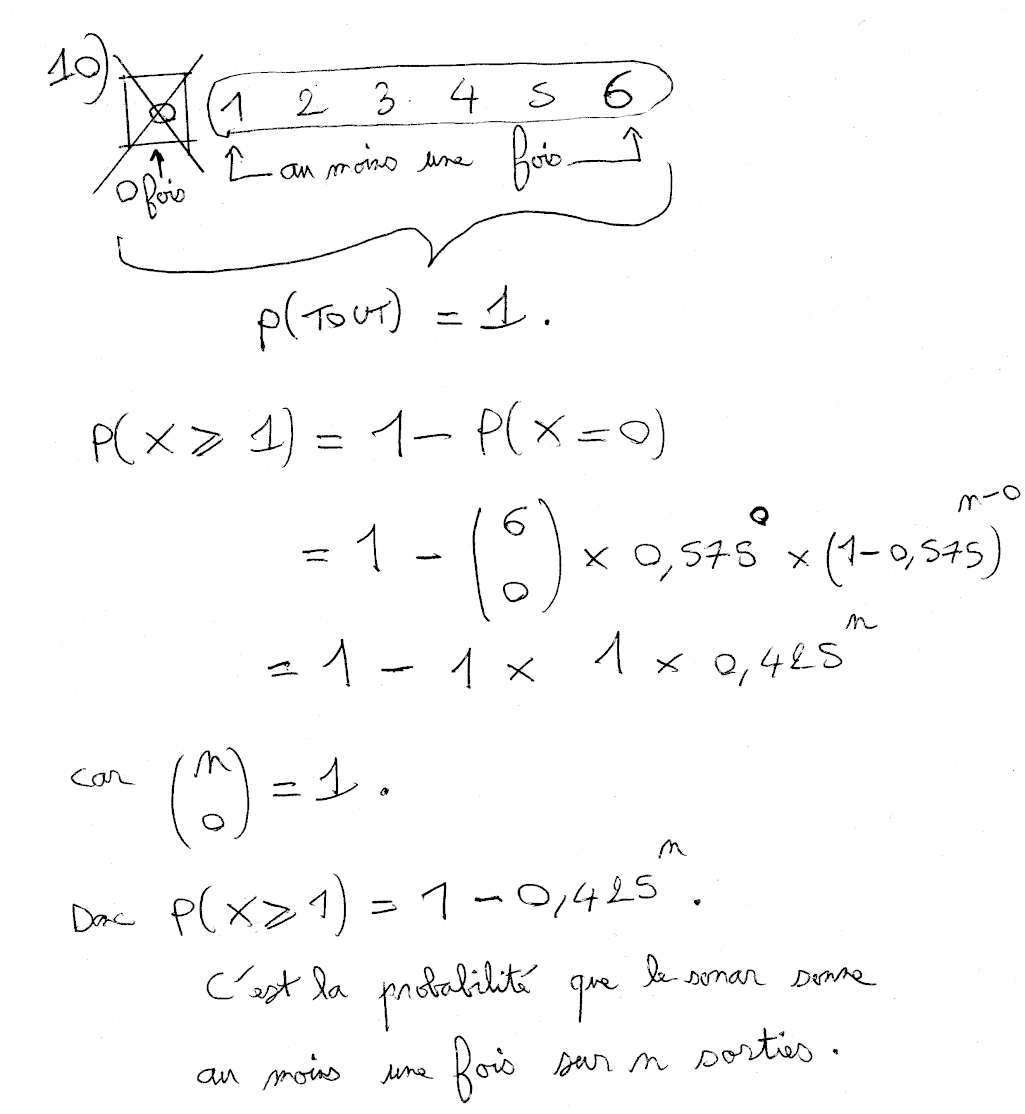 10) 0 1 2 3 4 5 6
0 fois au moins une fois
p(TOUT) = 1.
P(X ⩾ 1) = 1 − P(X = 0)
= 1 − (6 0) × 0,575^0 × (1−0,575)^(n−0)
= 1 − 1 × 1 × 0,425^n
car (n 0) = 1.
Donc P(X ⩾ 1) = 1 − 0,425^n.
C'est la probabilité que le sonar sonne
au moins une fois sur n sorties.